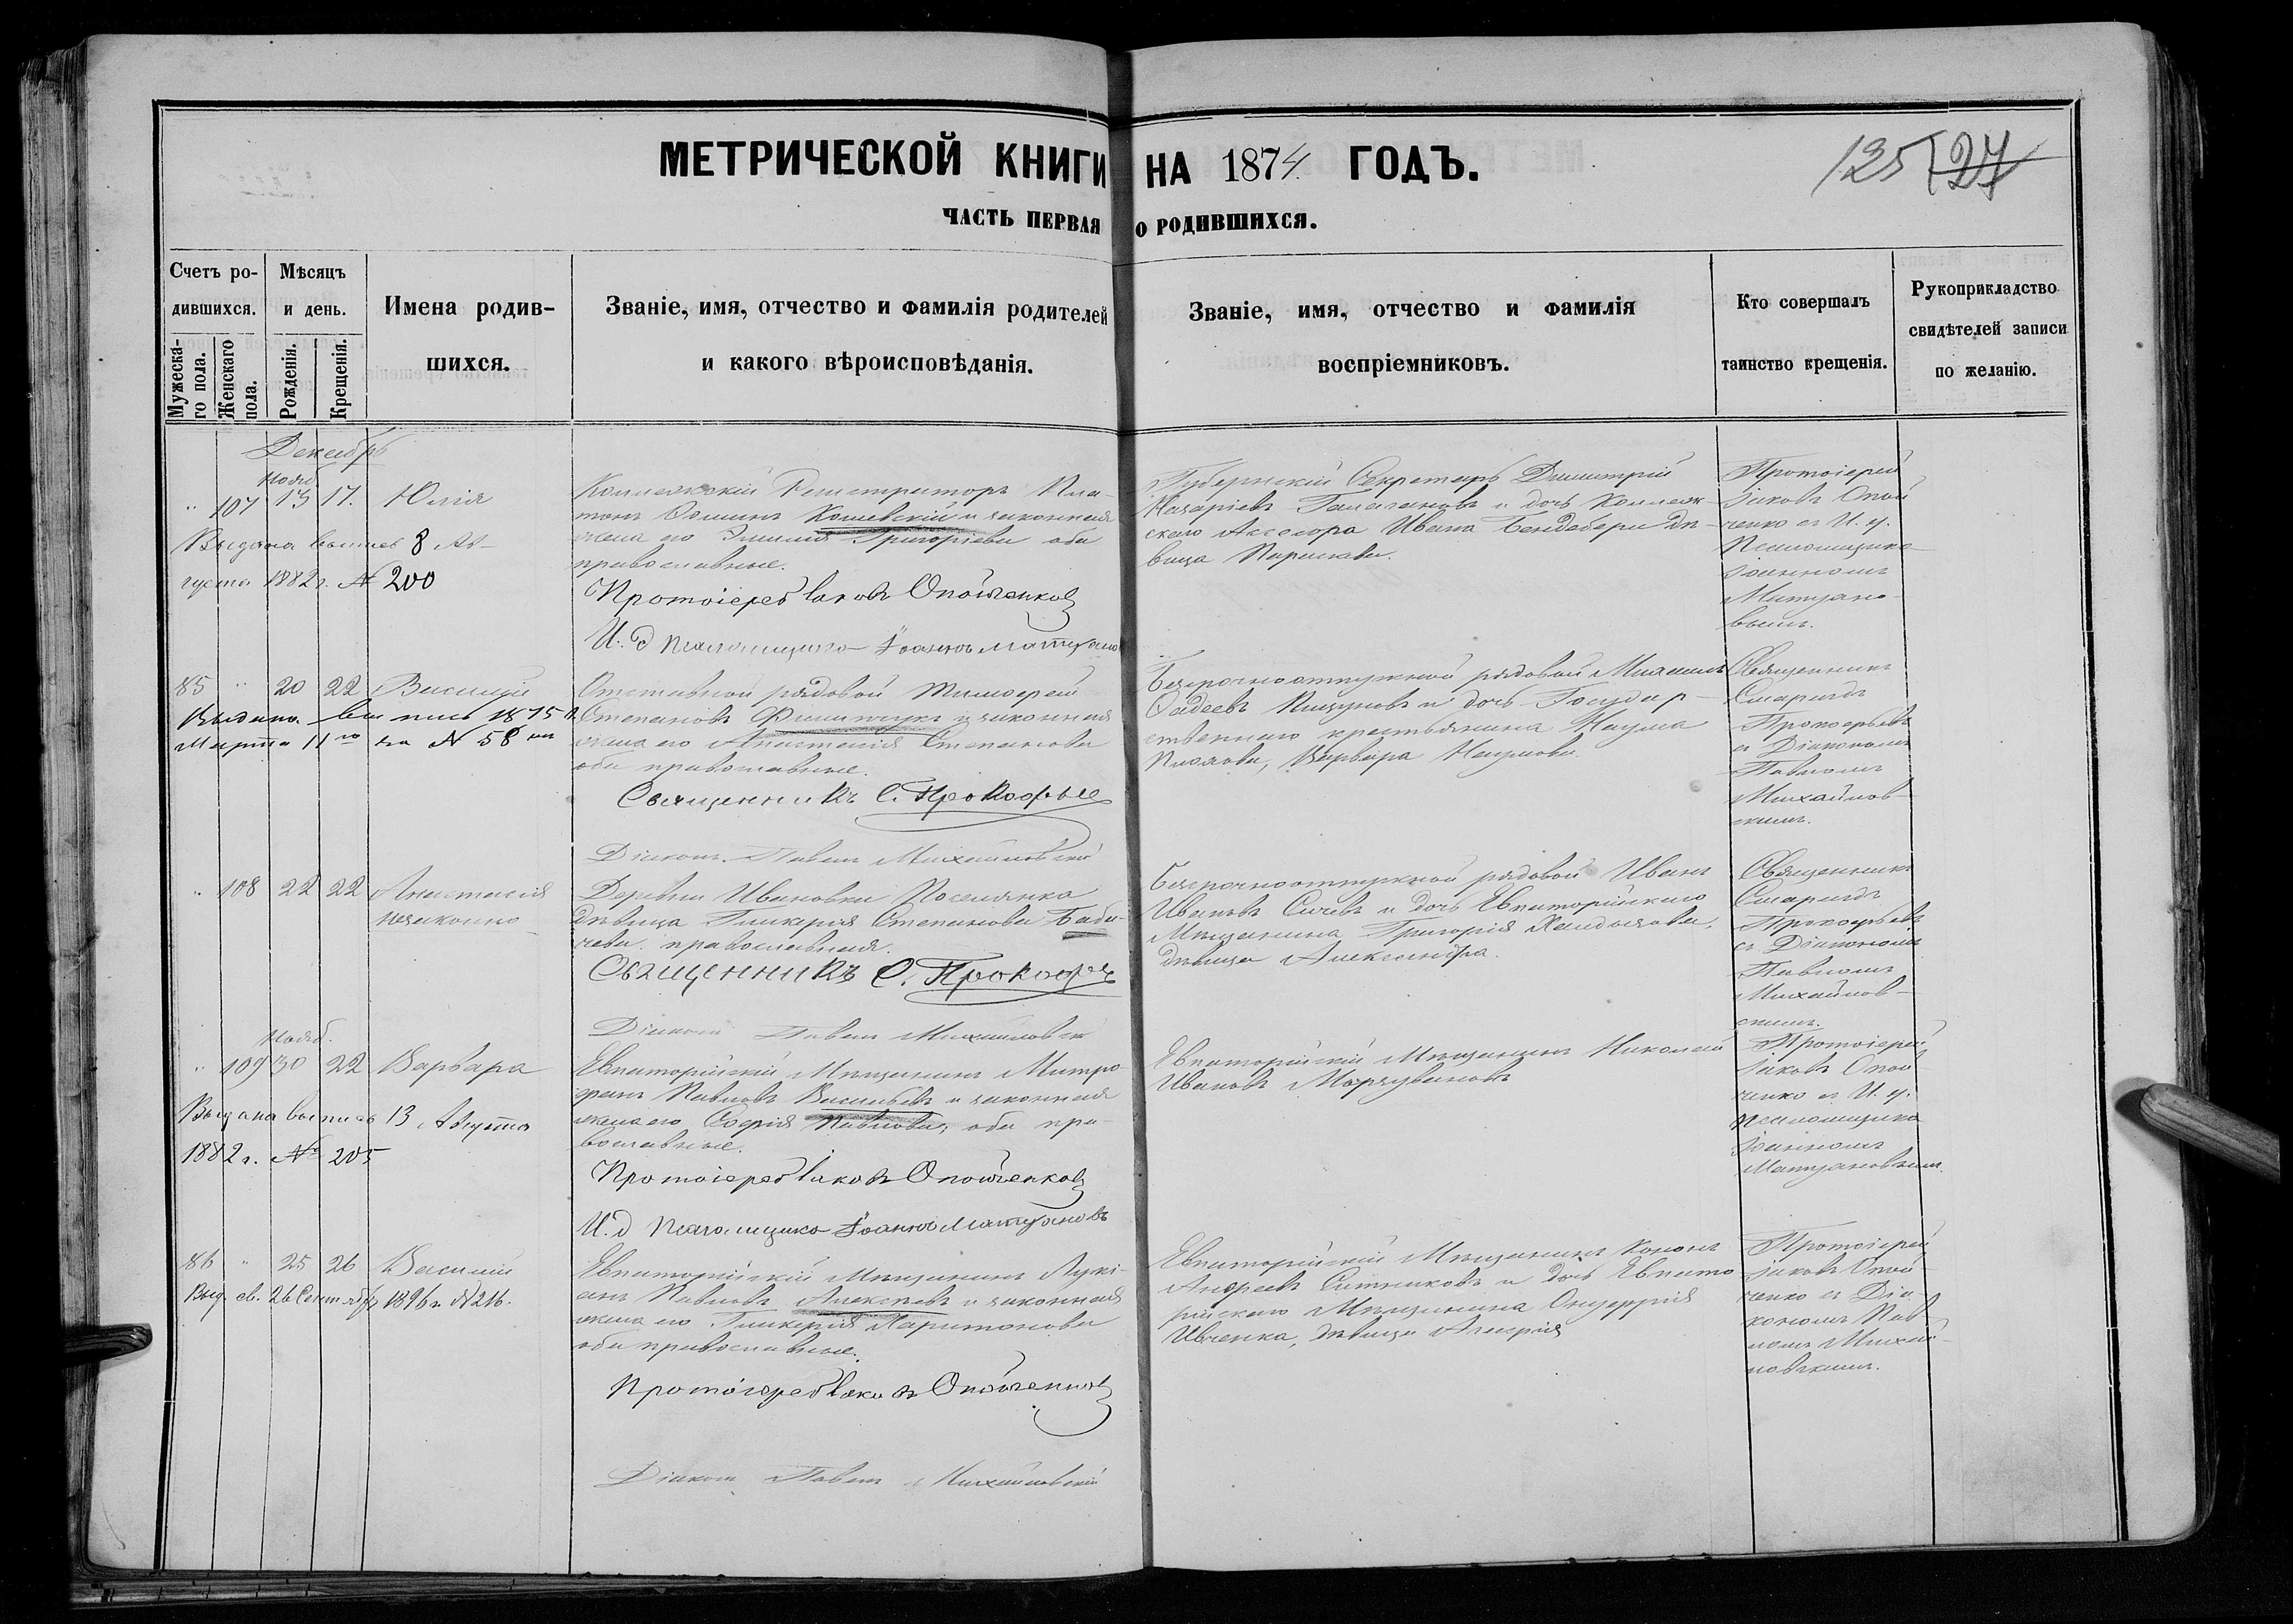 МЕТРИЧЕСКОЙ КНИГИ НА 1874 ГОДЪ.
125 27
ЧАСТЬ ПЕРВАЯ О РОДИВШИХСЯ.
Счетъ ро-
дившихся.
Мужеска-
го пола.
Женскаго
пола.
Мѣсяцъ
и день.
Рожденія.
Крещенія.
Имена родив-
шихся.
Званіе, имя, отчество и фамилія родителей
и какого вѣроисповѣданія.
Званіе, имя, отчество и фамилія
воспріемниковъ.
Кто совершалъ
таинство крещенія.
Рукоприкладство
свидѣтелей записи
по желанію.
Декабрь
Нояб
" 107 13 17. Юлія
Выдана выпись 8 Ав-
густа 1882 г. № 200
Коллежскій Регистраторъ Пла-
тонъ Ѳоминъ и законная
жена его Григорьева оба
православные.
Протоіерей Іаковъ Опойченковъ
И. д Псаломщика Іоаннъ
Губернскій Секретарь Димитрій
Назаріевъ и дочь Коллеж-
скаго Ассесора Ивана Бендебери дѣ-
вица
Протоіерей
Іаковъ Опой
ченко съ И. д.
Псаломщика
Іоанномъ
85 " 20 22 Василій
Выдана выпись 1875 г.
Марта 11го за № 58
Отставной рядовой Тимофей
Степановъ Филипчукъ и законная
жена его Анастасія Степанова
оба православные.
Священникъ С. Прокофьев
Діаконъ Павелъ Михайловскій
Безсрочноотпускной рядовой Михаилъ
Фадеевъ и дочь Государ-
ственнаго крестьянина Наума
Варвара Наумова.
Священникъ
Смарагдъ
Прокофьевъ
съ Діакономъ
Павломъ
Михайлов-
скимъ.
" 108 22 22 Анастасія
незаконно
Деревни Ивановки Поселянка
дѣвица Гликерія Степанова Баба-
чева православная.
Священникъ С. Прокофьев
Діаконъ Павелъ Михайловск
Безсрочноотпускной рядовой Иванъ
Ивановъ Сичевъ и дочь Евпаторійскаго
Мѣщанина Григорія
дѣвица Александра.
Священникъ
Смарагдъ
Прокофьевъ
съ Діакономъ
Павломъ
Михайлов-
скимъ.
Нояб.
" 109 30 22 Варвара
Выдана выпись 13 Августа
1882 г. № 205
Евпаторійскій Мѣщанинъ Митро-
фанъ Павловъ Васильевъ и законная
жена его Софія Павлова, оба пра-
вославные.
Протоіерей Іаковъ Опойченковъ
И. д Псаломщика Іоаннъ
Евпаторійскій Мѣщанинъ Николай
Ивановъ
Протоіерей
Іаковъ Опой
ченко съ И. д.
псаломщика
Іоанномъ
86 " 25 26 Василій
Выд. св. 26 Сентября 1896 г. № 216.
Евпаторійскій Мѣщанинъ Лукі-
анъ Павловъ Алексѣевъ и законная
жена его Гликерія Харитонова
оба православные.
Протоіерей Іаковъ Опойченковъ
Діаконъ Павелъ Михайловскій
Евпаторійскій Мѣщанинъ Кононъ
Андреевъ Ситниковъ и дочь Евпато
рійскаго Мѣщанина Онуфрія
Ивченка, дѣвица
Протоіерей
Іаковъ Опой
ченко съ Діа-
кономъ Пав-
ломъ Михай-
ловскимъ.